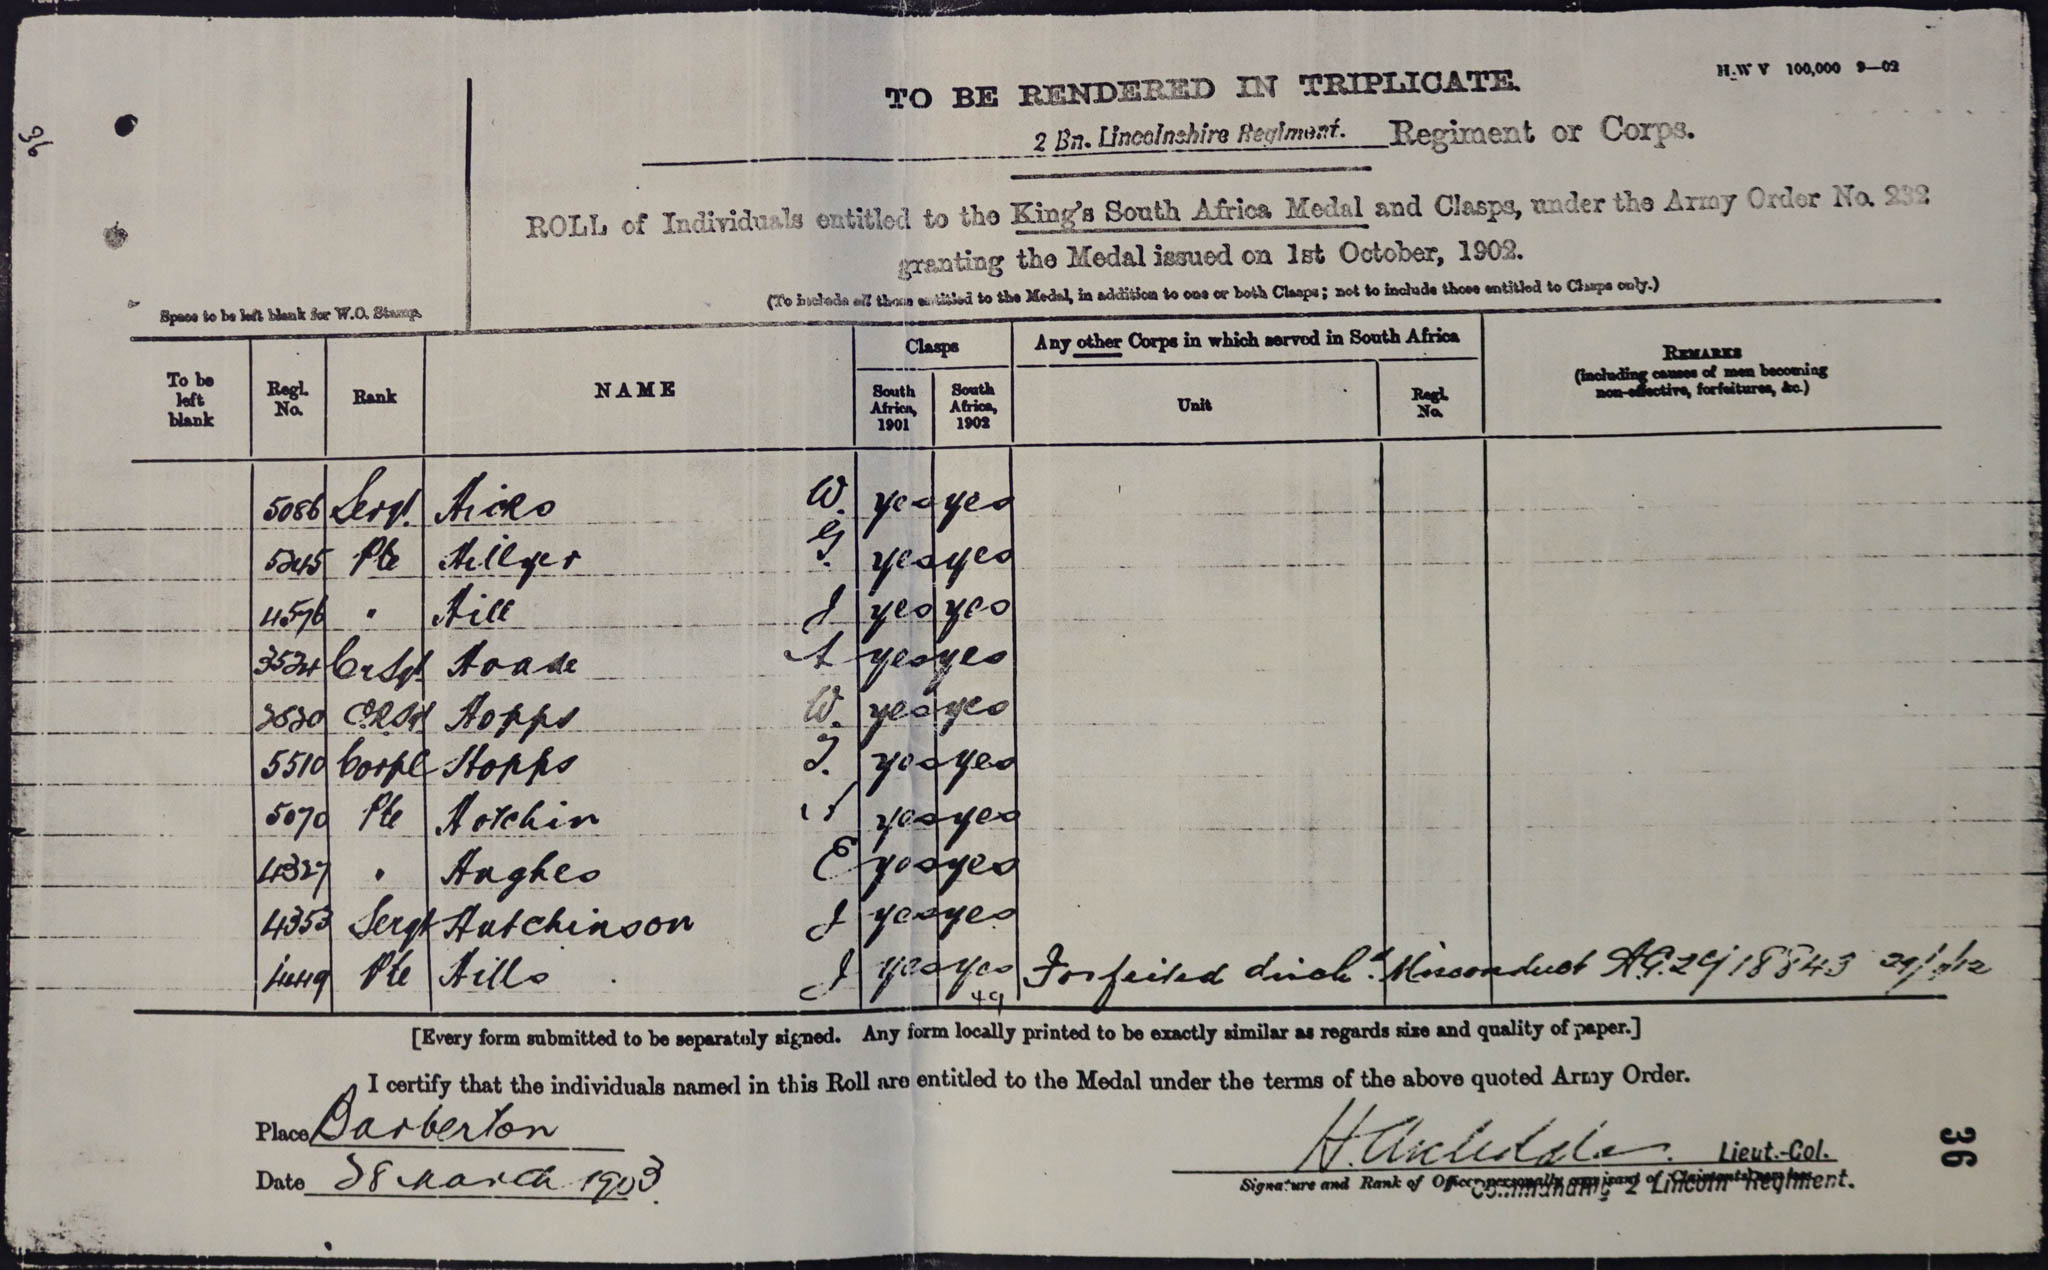 36
H.W V 100,000 9—02
TO BE RENDERED IN TRIPLICATE.
2 Bn. Lincolnshire Regiment. Regiment or Corps.
ROLL of Individuals entitled to the King's South Africa Medal and Clasps, under the Army Order No. 232
granting the Medal issued on 1st October, 1902.
(To include all those entitled to the Medal, in addition to one or both Clasps; not to include those entitled to Clasps only.)
Space to be left blank for W.O. Stamp.
To be left blank
Regl. No.
Rank
NAME
Clasps
South Africa, 1901
South Africa, 1902
Any other Corps in which served in South Africa
Unit
Regl. No.
REMARKS
(including causes of men becoming
non-effective, forfeitures, &c.)
5086 Sergt. Hicks W. yes yes
5245 Pte Hillyer G. yes yes
4576 " Hill J yes yes
3524 Cr Sgt Hoade A yes yes
Hopps W. yes yes
5510 Corpl Hopps T. yes yes
5070 Pte Hotchin yes yes
4327 " Hughes E yes yes
4353 Sergt Hutchinson J yes yes
4449 Pte Hills J yes yes Forfeited disch.d Misconduct
49
[Every form submitted to be separately signed. Any form locally printed to be exactly similar as regards size and quality of paper.]
I certify that the individuals named in this Roll are entitled to the Medal under the terms of the above quoted Army Order.
Place Barberton
Date 28 March 1903
Lieut.-Col.
Signature and Rank of Officer personally cognizant of Claimants' services
Commanding 2 Lincoln Regiment.
36